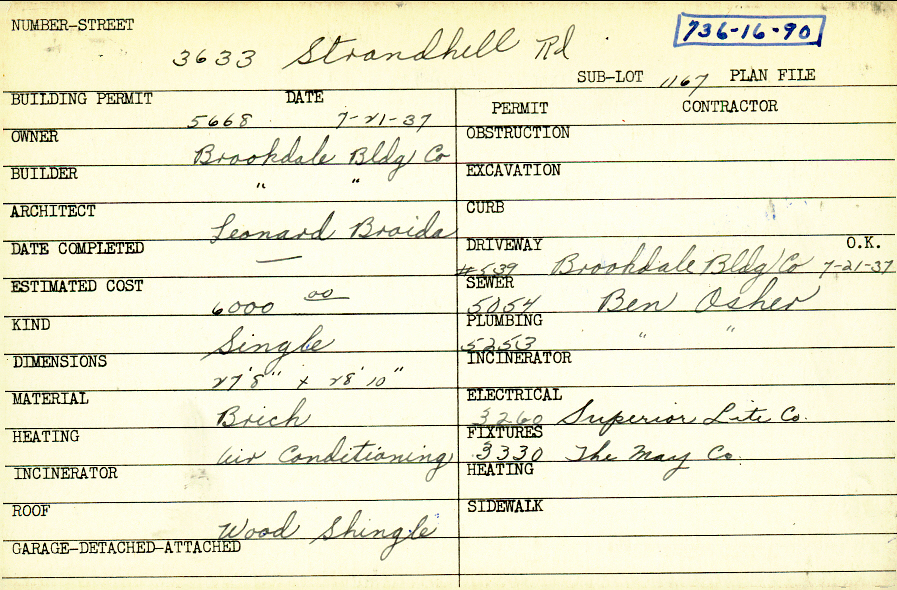 NUMBER-STREET
736-16-90
3633 Strandhill Rd
SUB-LOT 1167 PLAN FILE
BUILDING PERMIT DATE
5668 7-21-37
OWNER
Brookdale Bldg Co
BUILDER
" "
ARCHITECT
Leonard Braida
DATE COMPLETED
—
ESTIMATED COST
6000 00
KIND
Single
DIMENSIONS
27'8" x 28'10"
MATERIAL
Brick
HEATING
Air Conditioning
INCINERATOR
ROOF
Wood Shingle
GARAGE-DETACHED-ATTACHED
PERMIT CONTRACTOR
OBSTRUCTION
EXCAVATION
CURB
DRIVEWAY O.K.
#539 Brookdale Bldg Co 7-21-37
SEWER
5054 Ben Osher
PLUMBING
5253 " "
INCINERATOR
ELECTRICAL
3260 Superior Lite Co.
FIXTURES
3330 The May Co.
HEATING
SIDEWALK